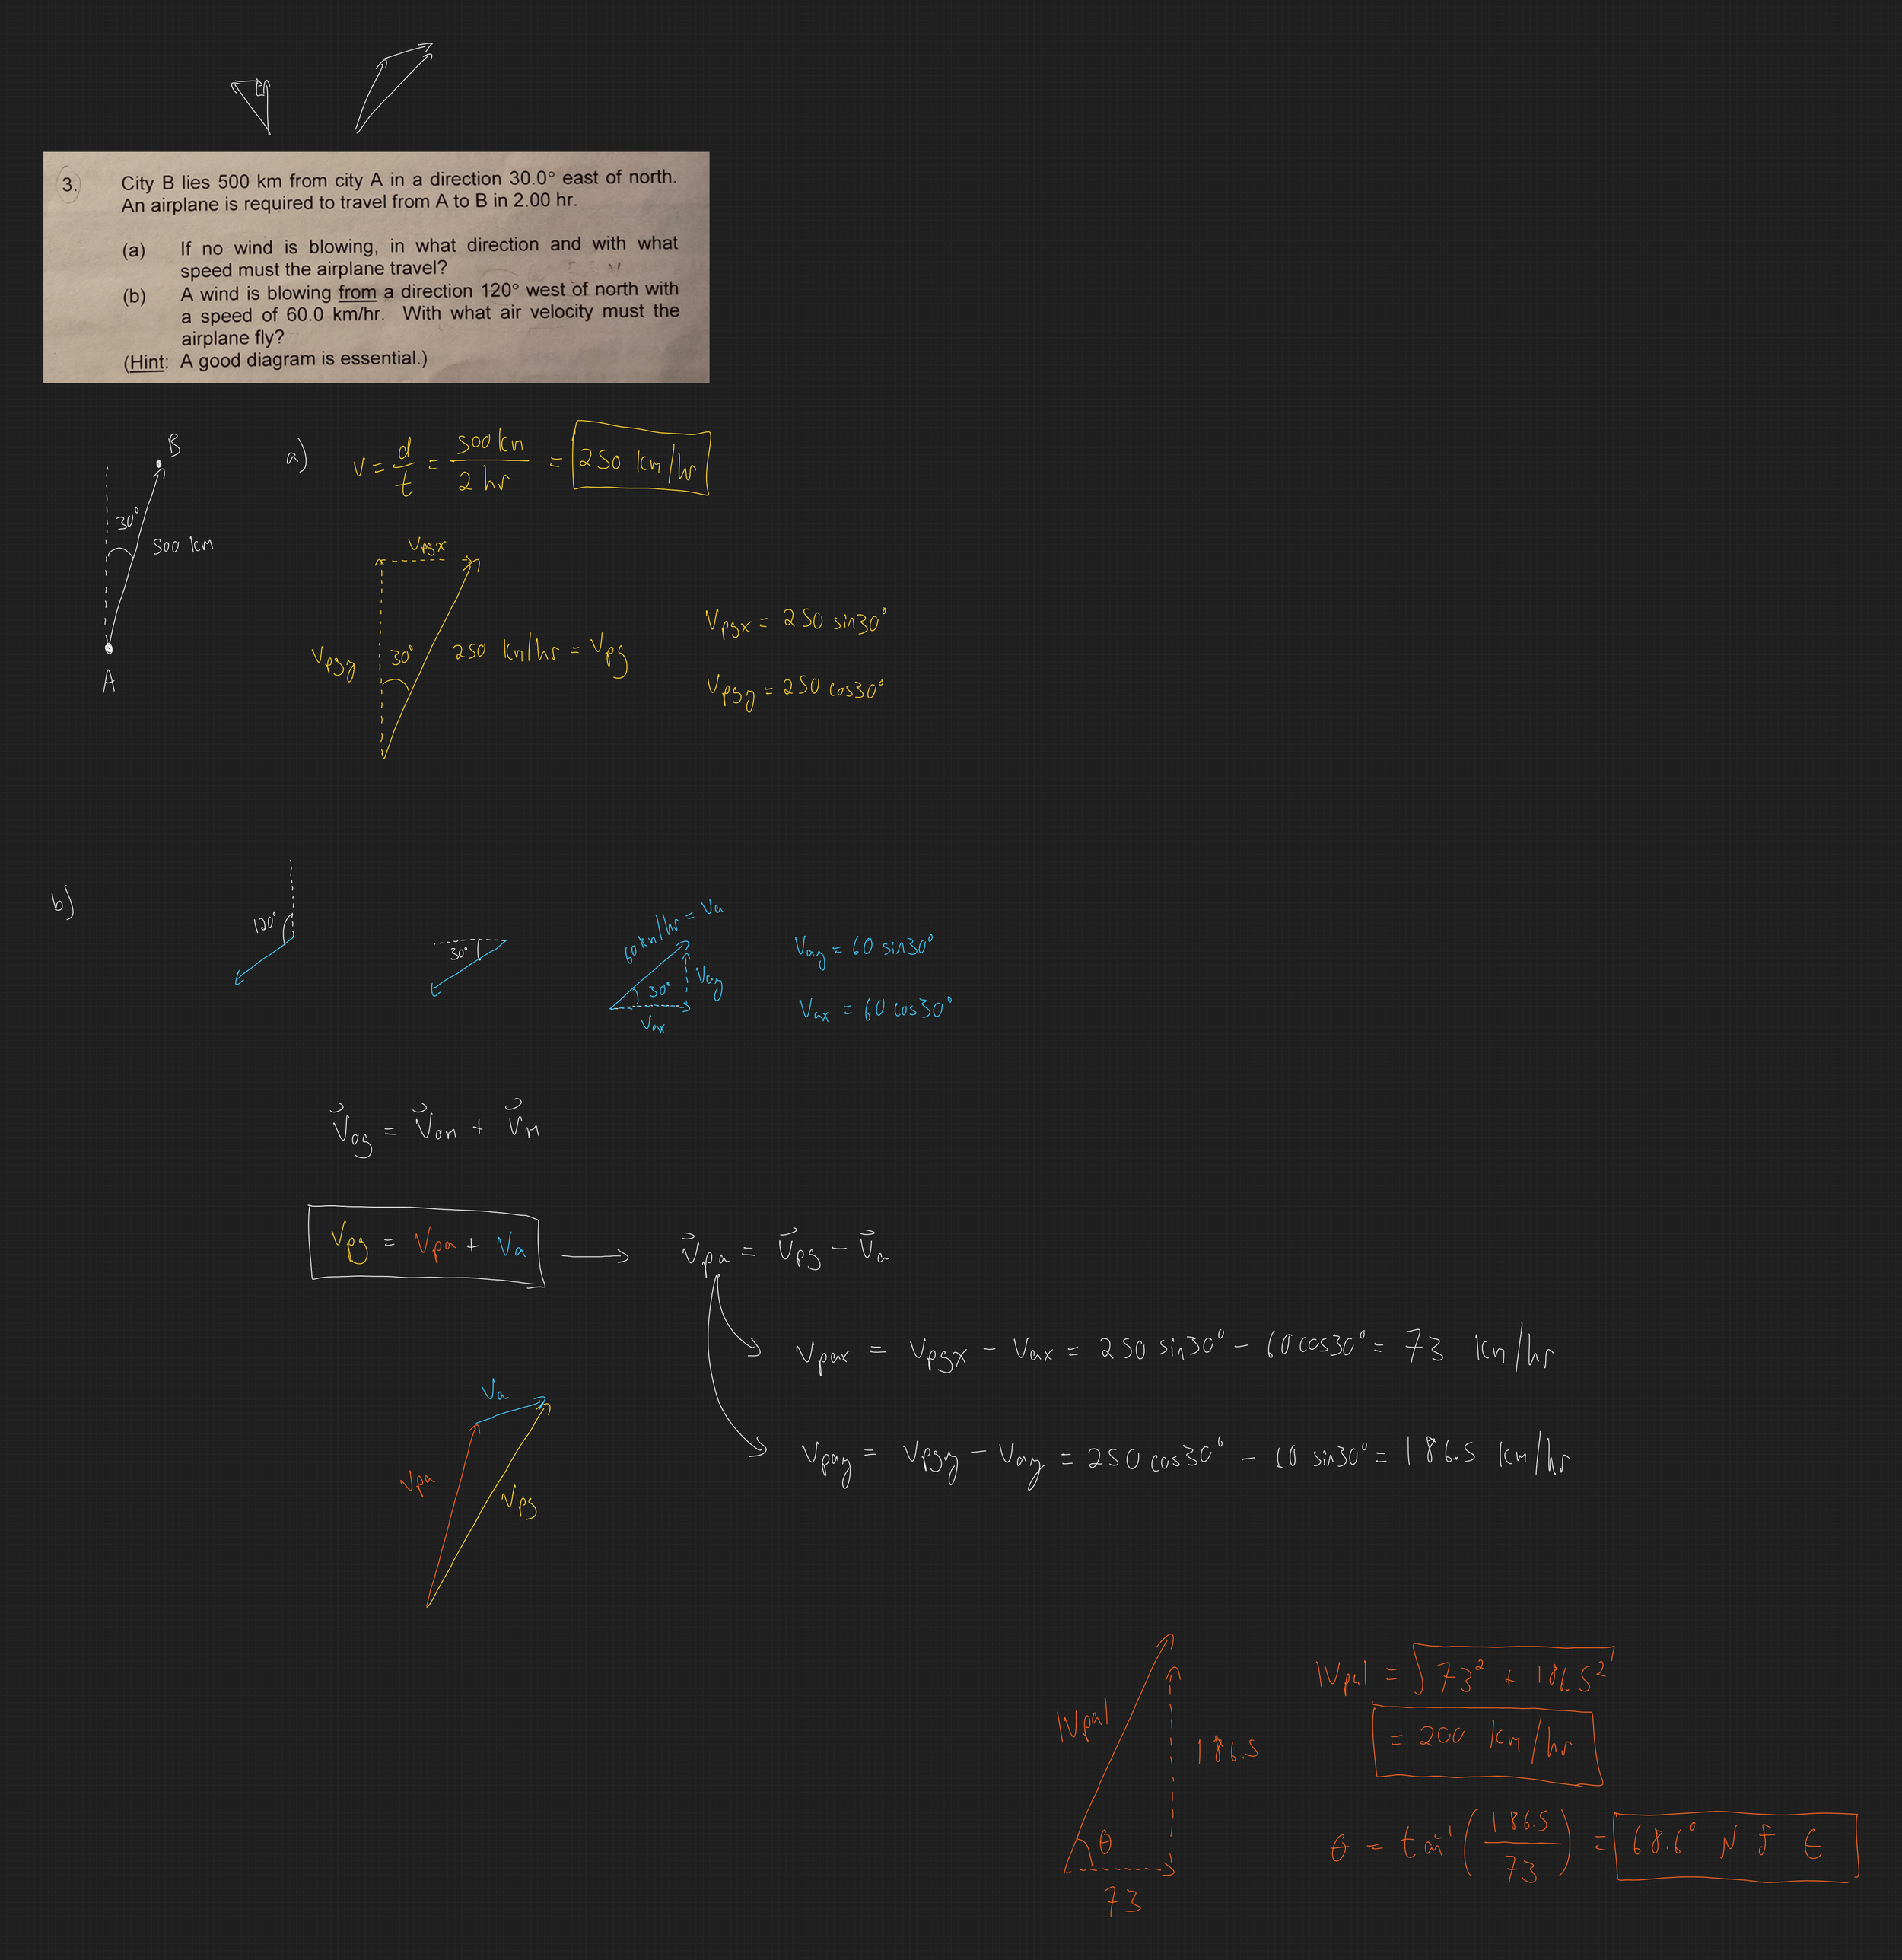 3. City B lies 500 km from city A in a direction 30.0° east of north.
An airplane is required to travel from A to B in 2.00 hr.
(a) If no wind is blowing, in what direction and with what
speed must the airplane travel?
(b) A wind is blowing from a direction 120° west of north with
a speed of 60.0 km/hr. With what air velocity must the
airplane fly?
(Hint: A good diagram is essential.)
B
30°
500 km
A
a) v = d/t = 500 km / 2 hr = 250 km/hr
Vpgx
Vpgy 30° 250 km/hr = Vpg
Vpgx = 250 sin30°
Vpgy = 250 cos30°
b)
120°
30°
60 km/hr = Va
30° Vay
Vax
Vay = 60 sin30°
Vax = 60 cos30°
V⃗og = V⃗om + V⃗m
Vpg = Vpa + Va → V⃗pa = V⃗pg − V⃗a
Vpax = Vpgx − Vax = 250 sin30° − 60 cos30° = 73 km/hr
Vpay = Vpgy − Vay = 250 cos30° − 60 sin30° = 186.5 km/hr
Va
Vpa
Vpg
|Vpa|
186.5
θ
73
|Vpa| = √73² + 186.5²
= 200 km/hr
θ = tan⁻¹ (186.5/73) = 68.6° N of E